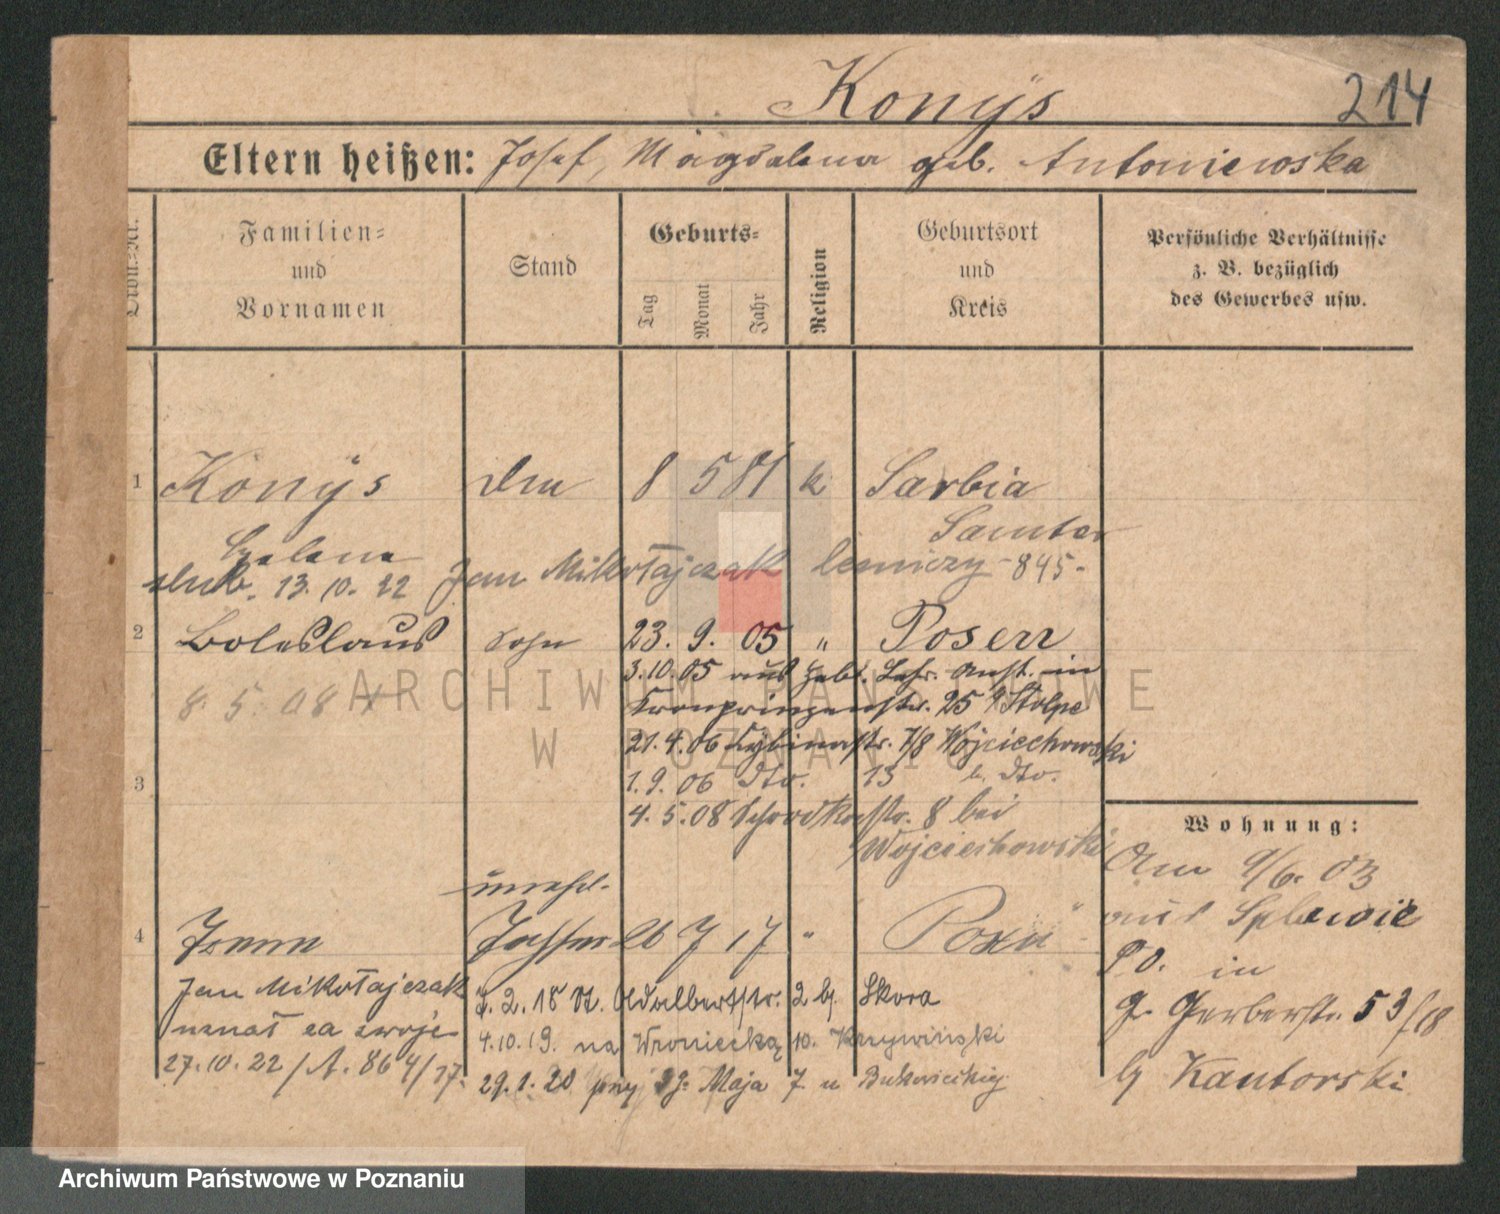 Konÿs 214
Eltern heißen: Josef, Magdalena geb. Antoniewska
Ordn.-Nr.
Familien-
und
Vornamen
Stand
Geburts-
Tag
Monat
Jahr
Religion
Geburtsort
und
Kreis
Persönliche Verhältnisse
z. B. bezüglich
des Gewerbes usw.
1 Konÿs 8 5 81 k Sarbia
Samter
Helena
ślub. 13. 10. 22 Jan Mikołajczak leśniczy - 845 -
2 Boleslaus Sohn 23. 9. 05 " Posen
3. 10. 05 aus Heb. Lehr. Anst. in
8. 5. 08
Kronprinzenstr. 25 b/ Stolpe
21. 4. 06 Cybinastr. 7/8 Wojciechowski
3
1. 9. 06 dto. 13 b. dto.
4. 5. 08 Schrodkastr. 8 bei
Wojciechowski
unehel.
4 Irena Tochter 26 7 17 " Posen
Jan Mikołajczak
uznał za swoje
27. 10. 22 / A. 864/17.
2. 18 Adalbertstr. 2 bj. Skora
4. 10. 19. na Wroniecką 10. Krzywiński
29. 1. 20 przy 3go Maja 7 u Bukowieckiej
Wohnung:
Am 9/6. 03
aus Splawie
P.O. in
Gr. Gerberstr. 53/18
bj Kantorski
ARCHIWUM PAŃSTWOWE
W POZNANIU
Archiwum Państwowe w Poznaniu